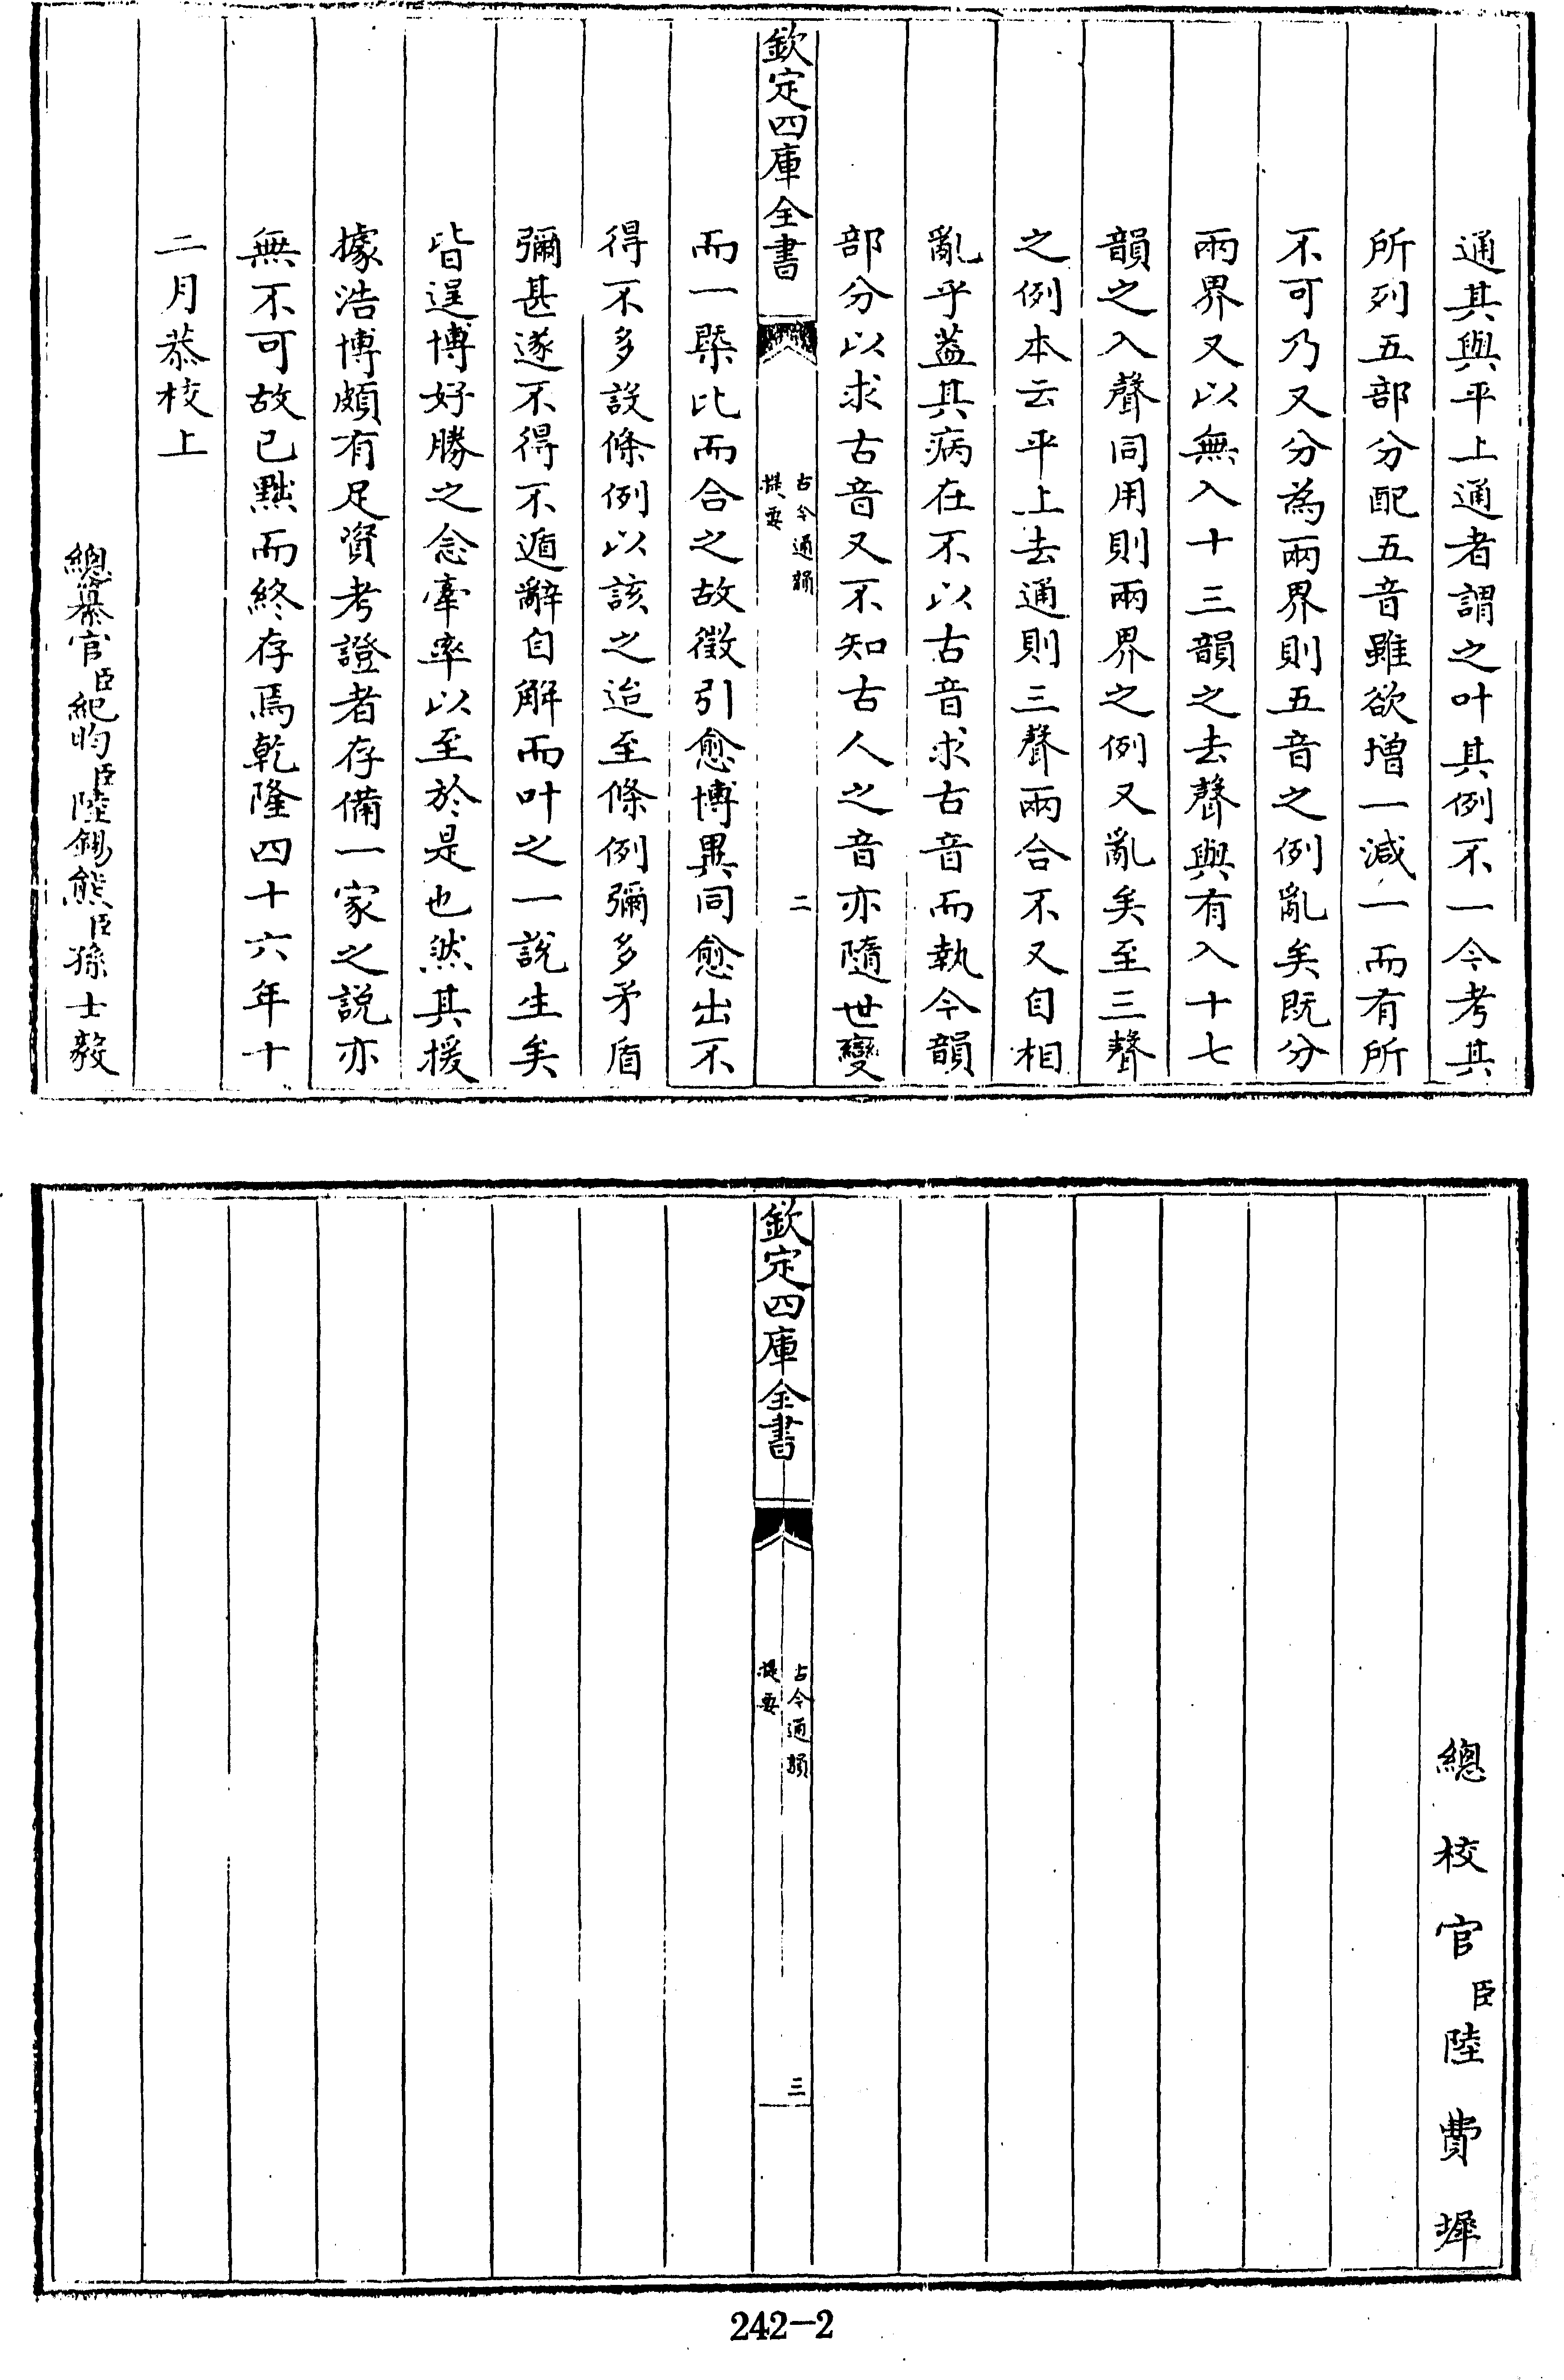 通其與平上通者謂之叶其例不一今考其
所列五部分配五音雖欲增一減一而有所
不可乃又分為兩界則五音之例亂矣既分
兩界又以無入十三韻之去聲與有入十七
韻之入聲同用則兩界之例又亂矣至三聲
之例本云平上去通則三聲兩合不又自相
亂乎蓋其病在不以古音求古音而執今韻
部分以求古音又不知古人之音亦隨世變
欽定四庫全書
古今通韻
提要
二
而一槩比而合之故徵引愈博異同愈出不
得不多設條例以該之迨至條例彌多矛盾
彌甚遂不得不遁辭自解而叶之一說生矣
皆逞博好勝之念牽率以至於是也然其援
據浩博頗有足資考證者存備一家之說亦
無不可故已黜而終存焉乾隆四十六年十
二月恭校上
總纂官臣紀昀臣陸錫熊臣孫士毅
總校官臣陸費墀
欽定四庫全書
古今通韻
提要
三
242-2